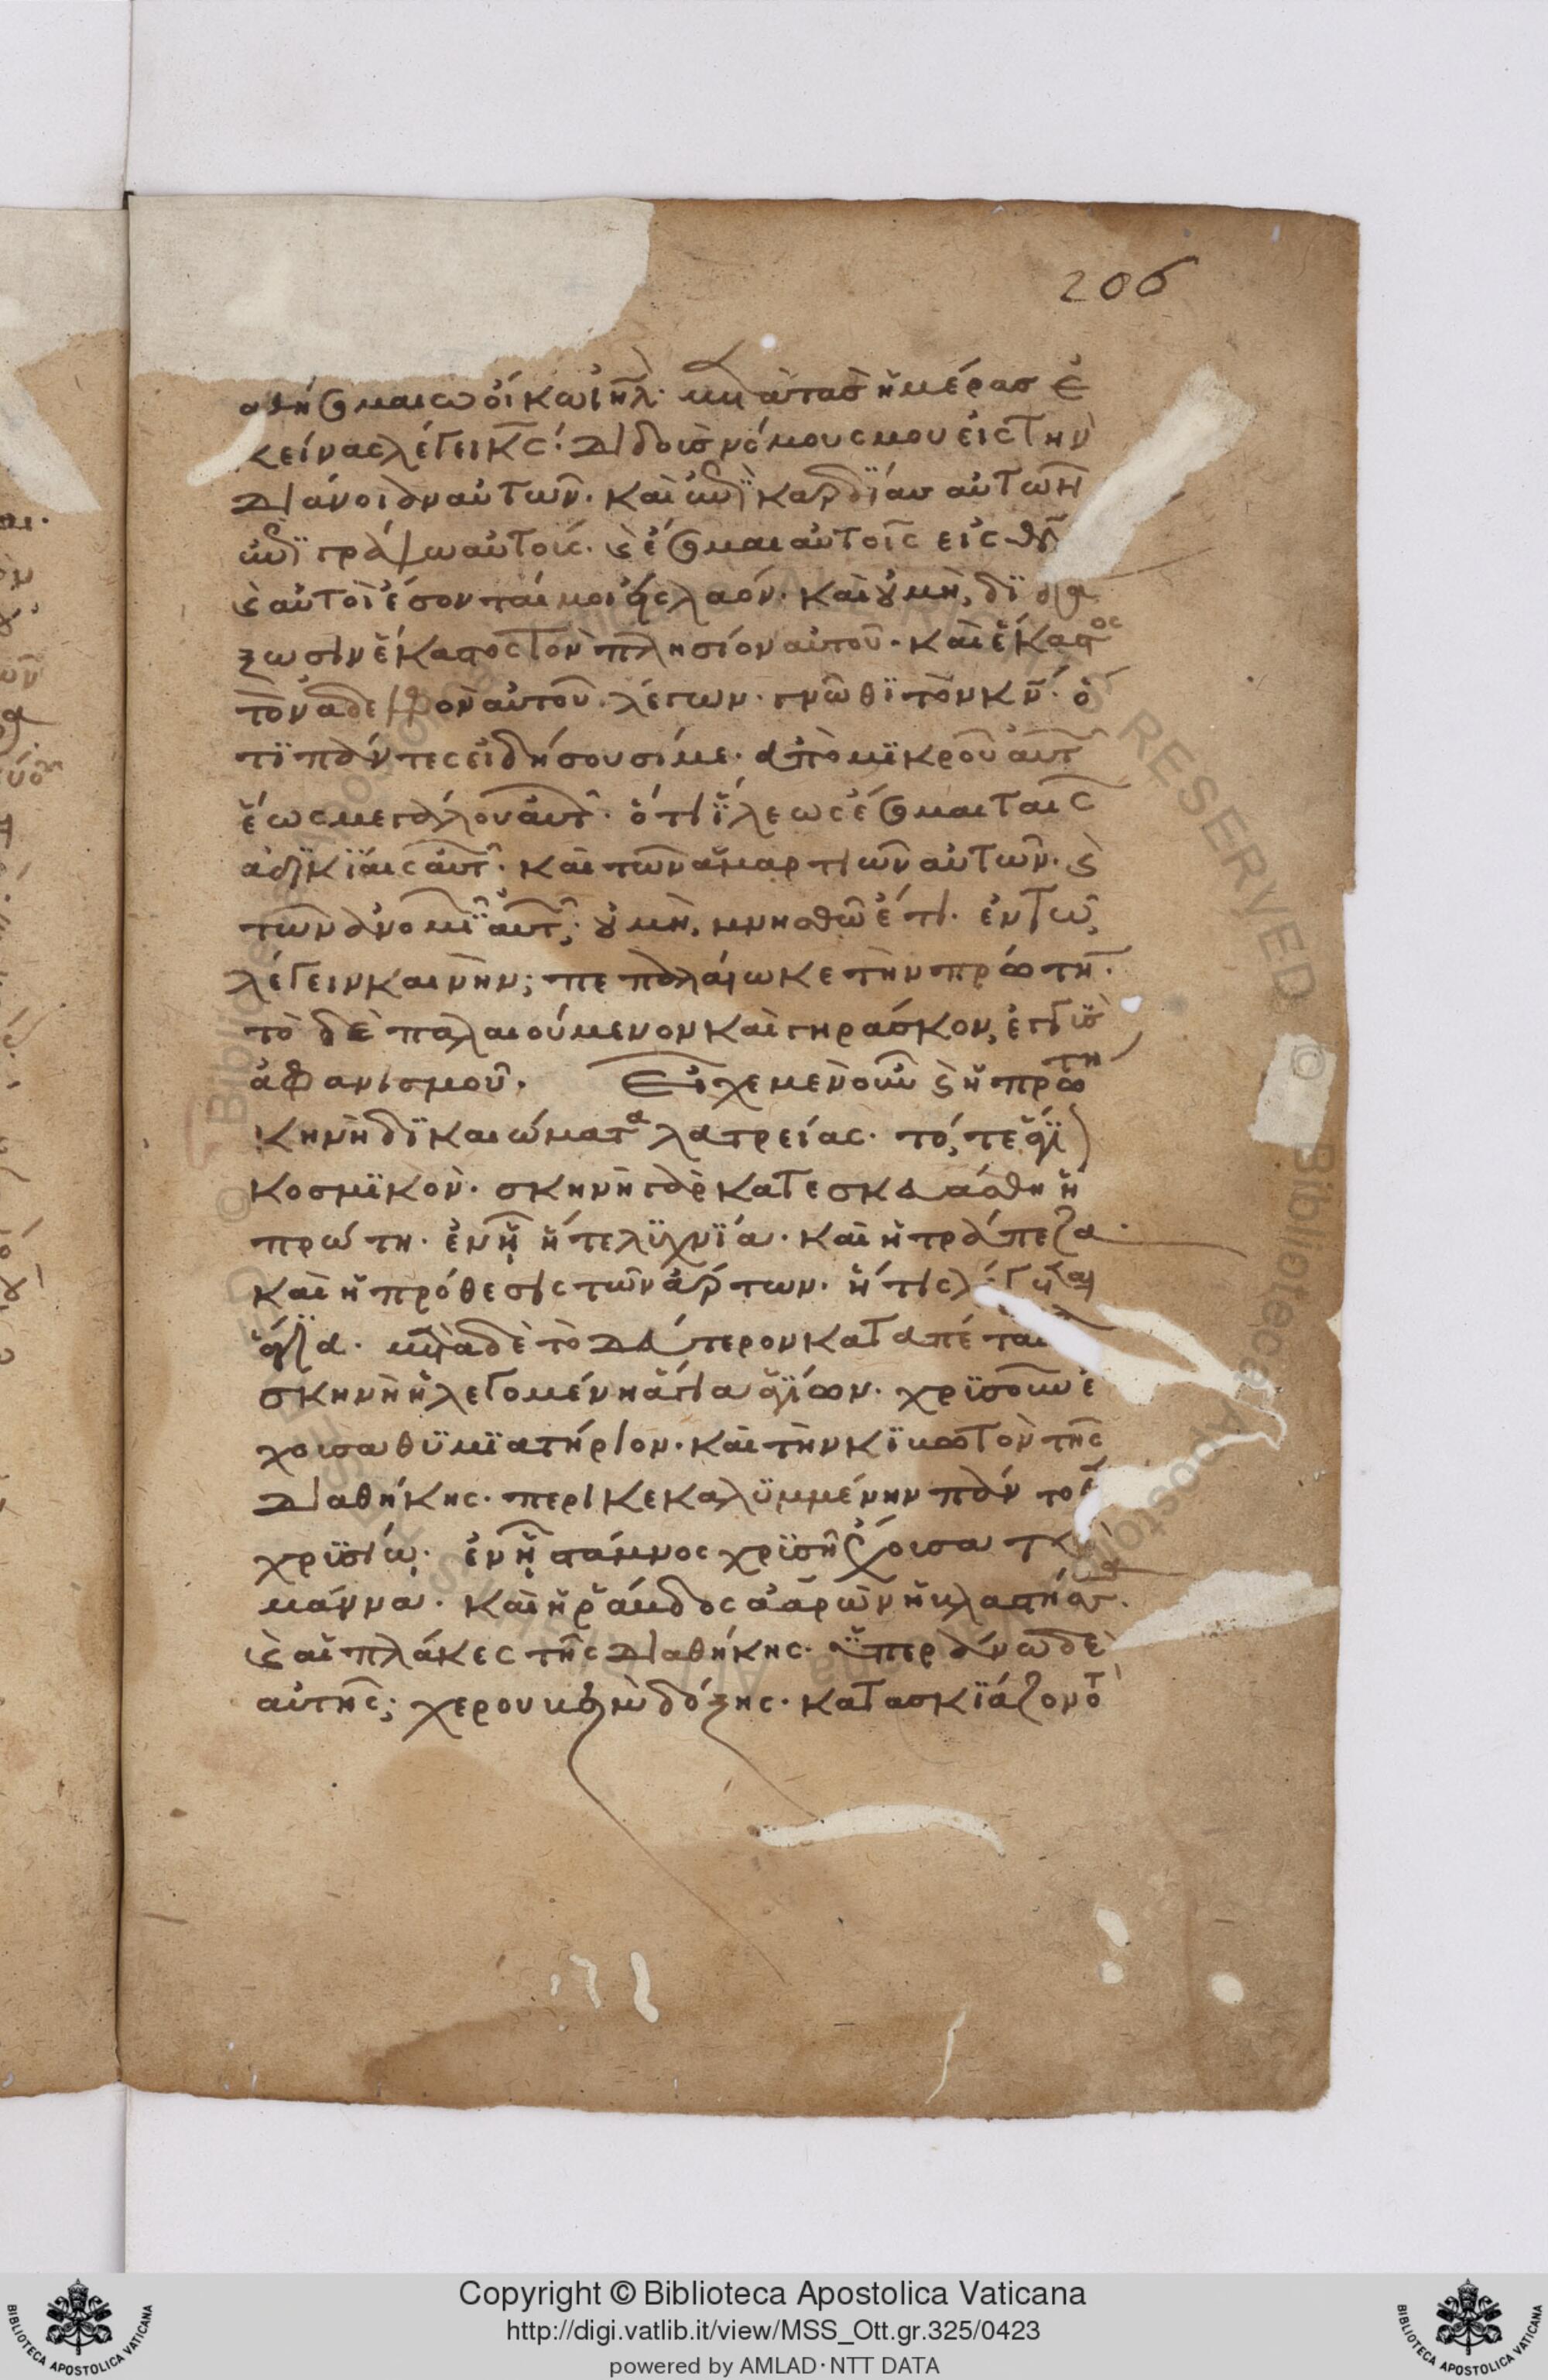 206
θήσομαι τῶ οἴκω ἰη̅λ· μετὰ τὰσ ἡμέρασ ἐ
κείνας λέγει κ̅ς· διδοὺσ νόμους μου εἰς τὴν
διάνοιαν αὐτῶν· καὶ ἐπὶ καρδίασ αὐτῶν
ἐπιγράψω αὐτοίς· ϛ ἔσομαι αὐτοῖς εἰς θν̅
ϛ αὐτοὶ ἔσονταί μοι εἰς λαόν· καὶ οὐ μὴ, διδα
ξωσιν ἕκαστος τὸν πλησίον αὐτοῦ· καὶ ἕκαστος
τὸν ἀδελφὸν αὐτοῦ· λέγων· γνῶθι τὸν κν̅· ὅ
τι πάντες εἰδήσουσί με· ἀπὸ μικροῦ αὐτ
ἕως μεγάλου αὐτ· ὅτι ἵλεως ἔσομαι ταῖς
ἀδικίαις αὐτ· καὶ τῶν ἁμαρτιῶν αὐτῶν· ϛ
τῶν ἀνομι αὐτ; οὐ μὴ, μνησθῶ ἔτι· ἐν τῶ,
λέγειν καινὴν; πεπαλαίωκε τὴν πρώτην·
τὸ δὲ παλαιούμενον καὶ γηράσκον, ἐγγὺσ
ἀφανισμοῦ· Εἶχε μὲν οὖν ϛ ἡ πρώτη
σκηνὴ δικαιώματα λατρείας· τό, τε ἅγι
κοσμικὸν· σκηνὴ γὰρ κατεσκευάσθη ἡ
πρώτη· ἐν ἧ ἥ τε λυχνία· καὶ ἡ τράπεζα·
καὶ ἡ πρόθεσις τῶν ἄρτων· ἥτις λέγεται
ἅγια· μετὰ δὲ τὸ δεύτερον καταπέτασμ
σκηνὴ ἡ λεγομένη ἅγια ἁγίων· χρισοῦν ἔ
χουσα θυμιατήριον· καὶ τὴν κιβωτὸν τῆς
διαθήκης· περικεκαλυμμένην πάντοθ
χρισίω· ἐν ἧ στάμνος χρισῆ ἔχουσα τὸ
μάννα· καὶ ἡ ῥάβδος ἀαρὼν ἡ βλαστήσασα·
ϛ αἱ πλάκες τῆς διαθήκης· ὕπερ ἄνω δὲ
αὐτῆς; χερουβὶμ δόξης· κατασκιάζοντ
Copyright © Biblioteca Apostolica Vaticana
http://digi.vatlib.it/view/MSS_Ott.gr.325/0423
powered by AMLAD·NTT DATA
BIBLIOTECA APOSTOLICA VATICANA
BIBLIOTECA APOSTOLICA VATICANA